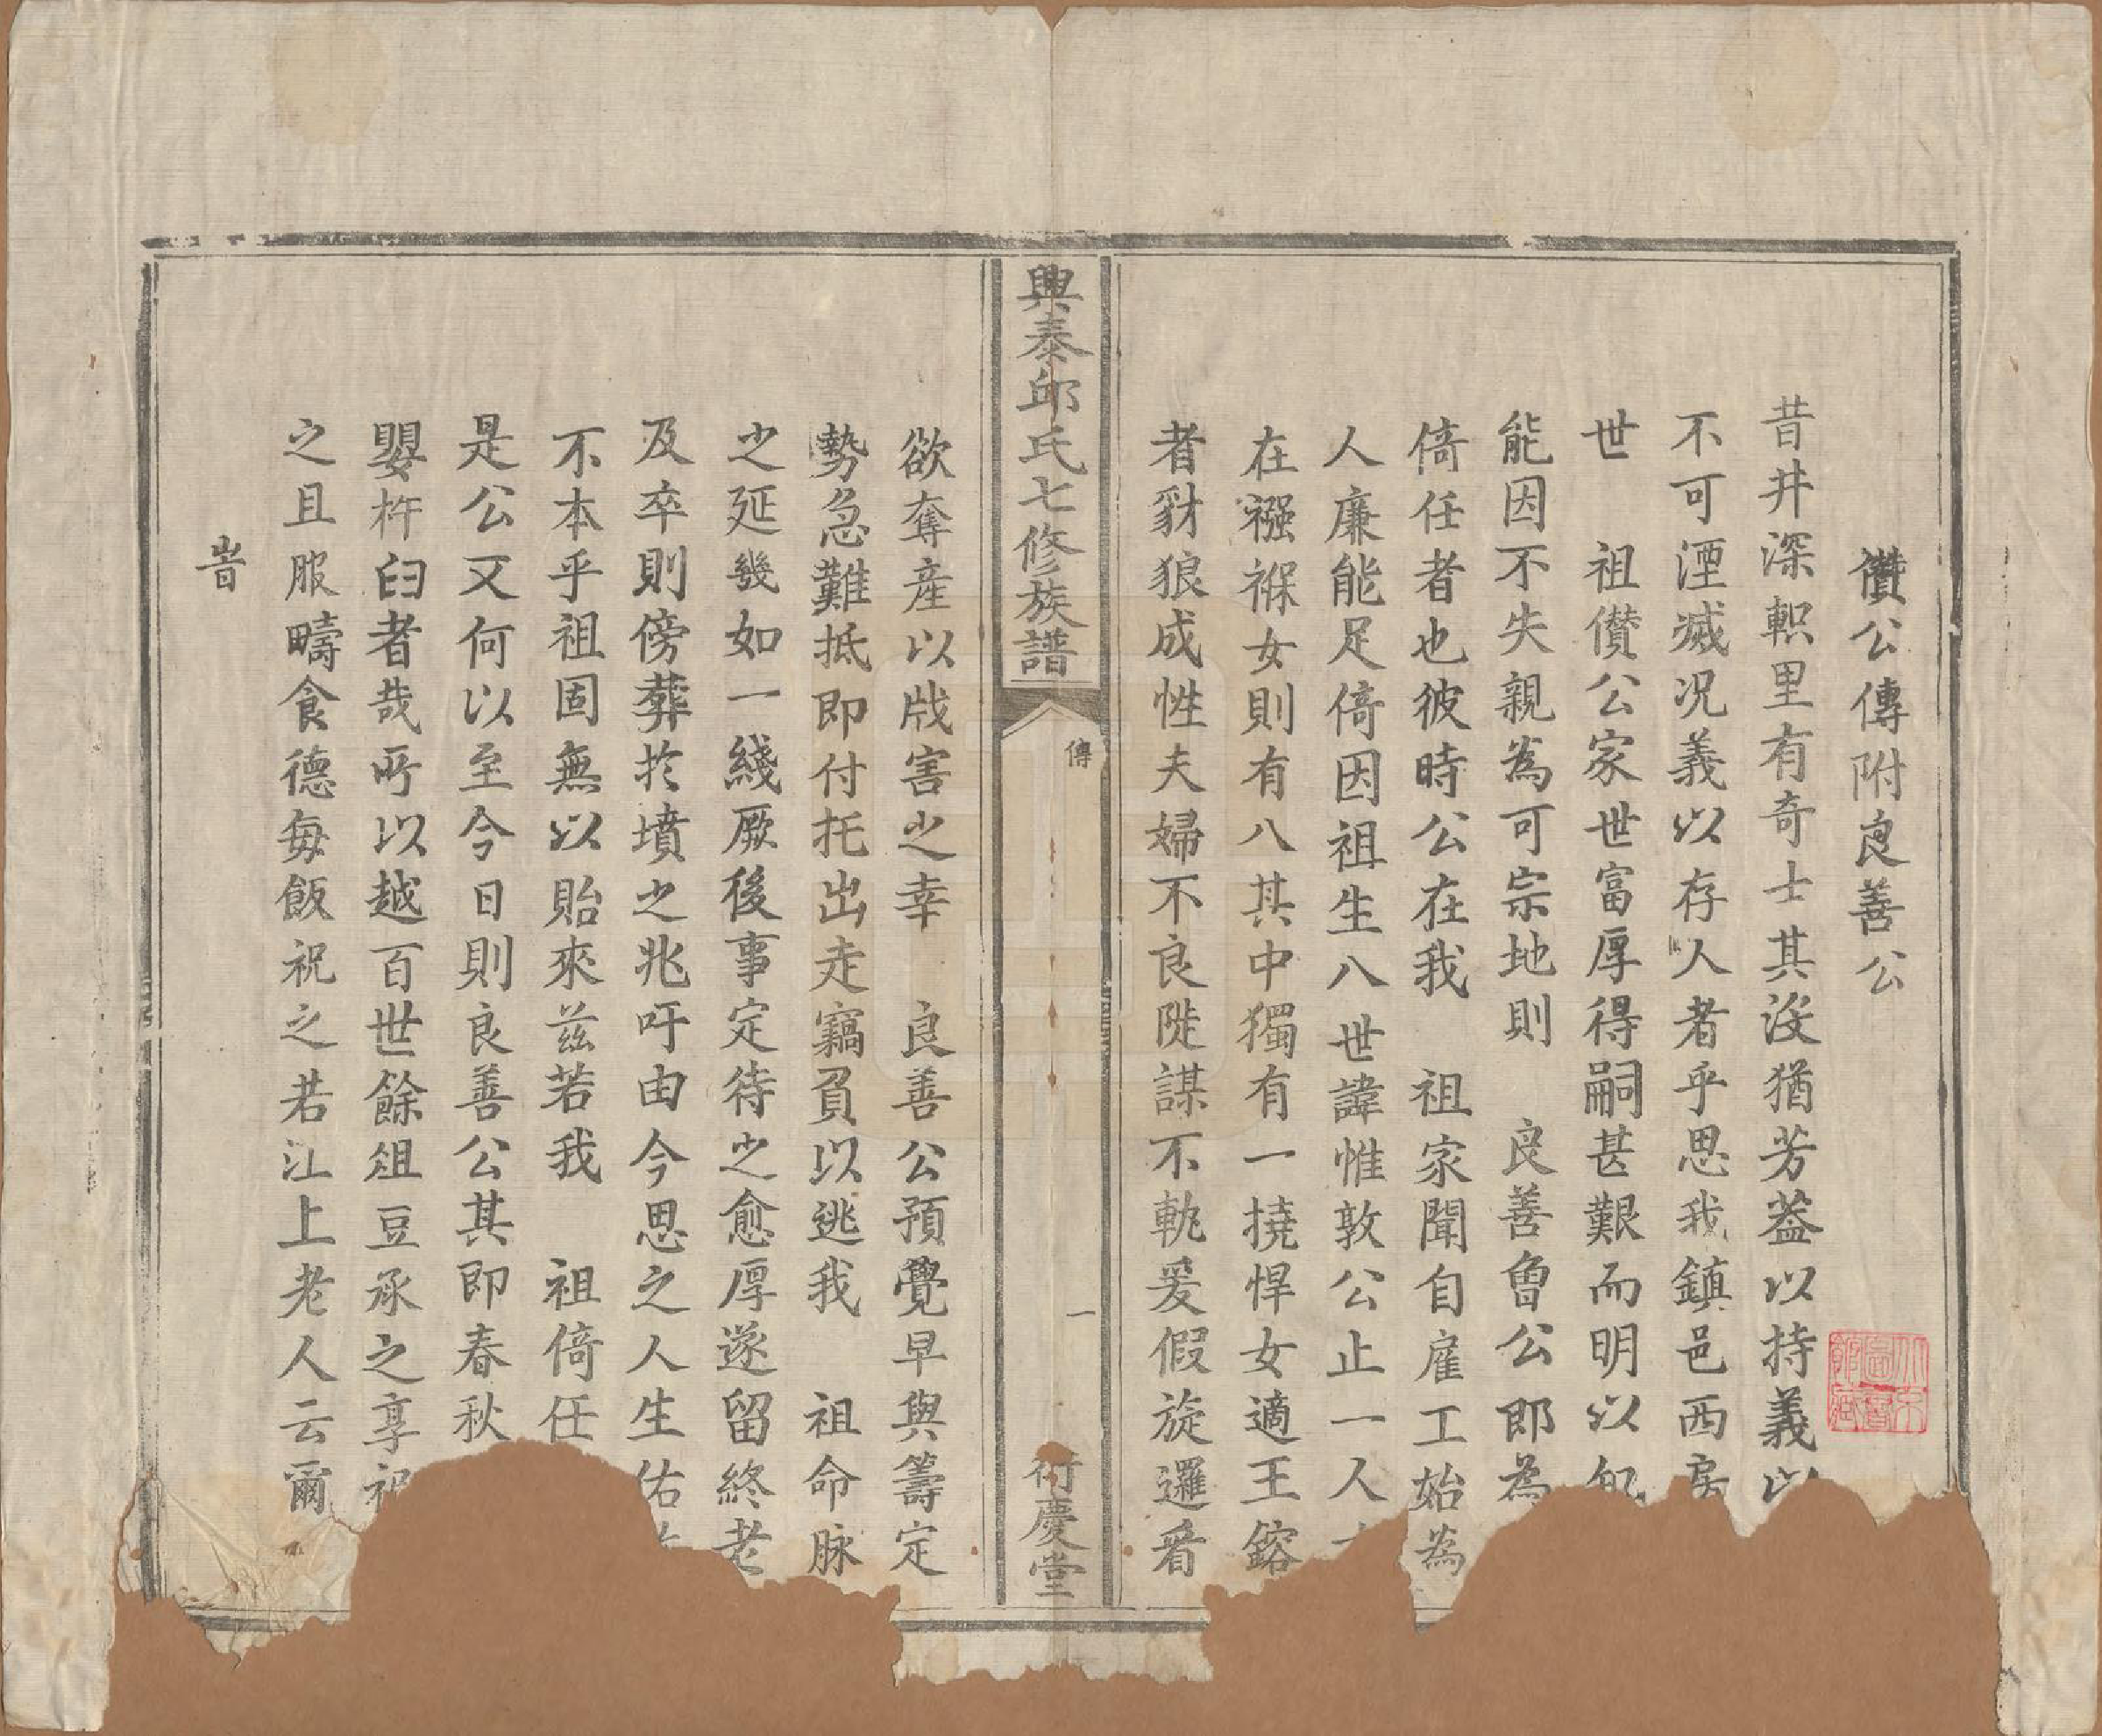 儹公傳附良善公
昔井深軹里有奇士其沒猶芳葢以持義以
不可湮滅況義以存人者乎思我鎮邑西房
世　祖儹公家世富厚得嗣甚艱而明以
能因不失親為可宗地則　良善魯公即為
倚任者也彼時公在我　祖家聞自雇工始為
人廉能足倚因祖生八世諱惟敦公止一人
在襁褓女則有八其中獨有一撓悍女適王鎔
者豺狼成性夫婦不良陡謀不軌爰假旋邏看
興泰邱氏七修族譜
傳
一
衍慶堂
欲奪產以戕害之幸　良善公預覺早與籌定
勢急難抵即付托出走竊負以逃我　祖命脉
之延幾如一綫厥後事定待之愈厚遂留終老
及卒則傍葬於墳之兆吁由今思之人生佑
不本乎祖固無以貽來茲若我　祖倚任
是公又何以至今日則良善公其即春秋
嬰杵臼者哉所以越百世餘俎豆承之享祀
之且服疇食德每飯祝之若江上老人云爾
旹